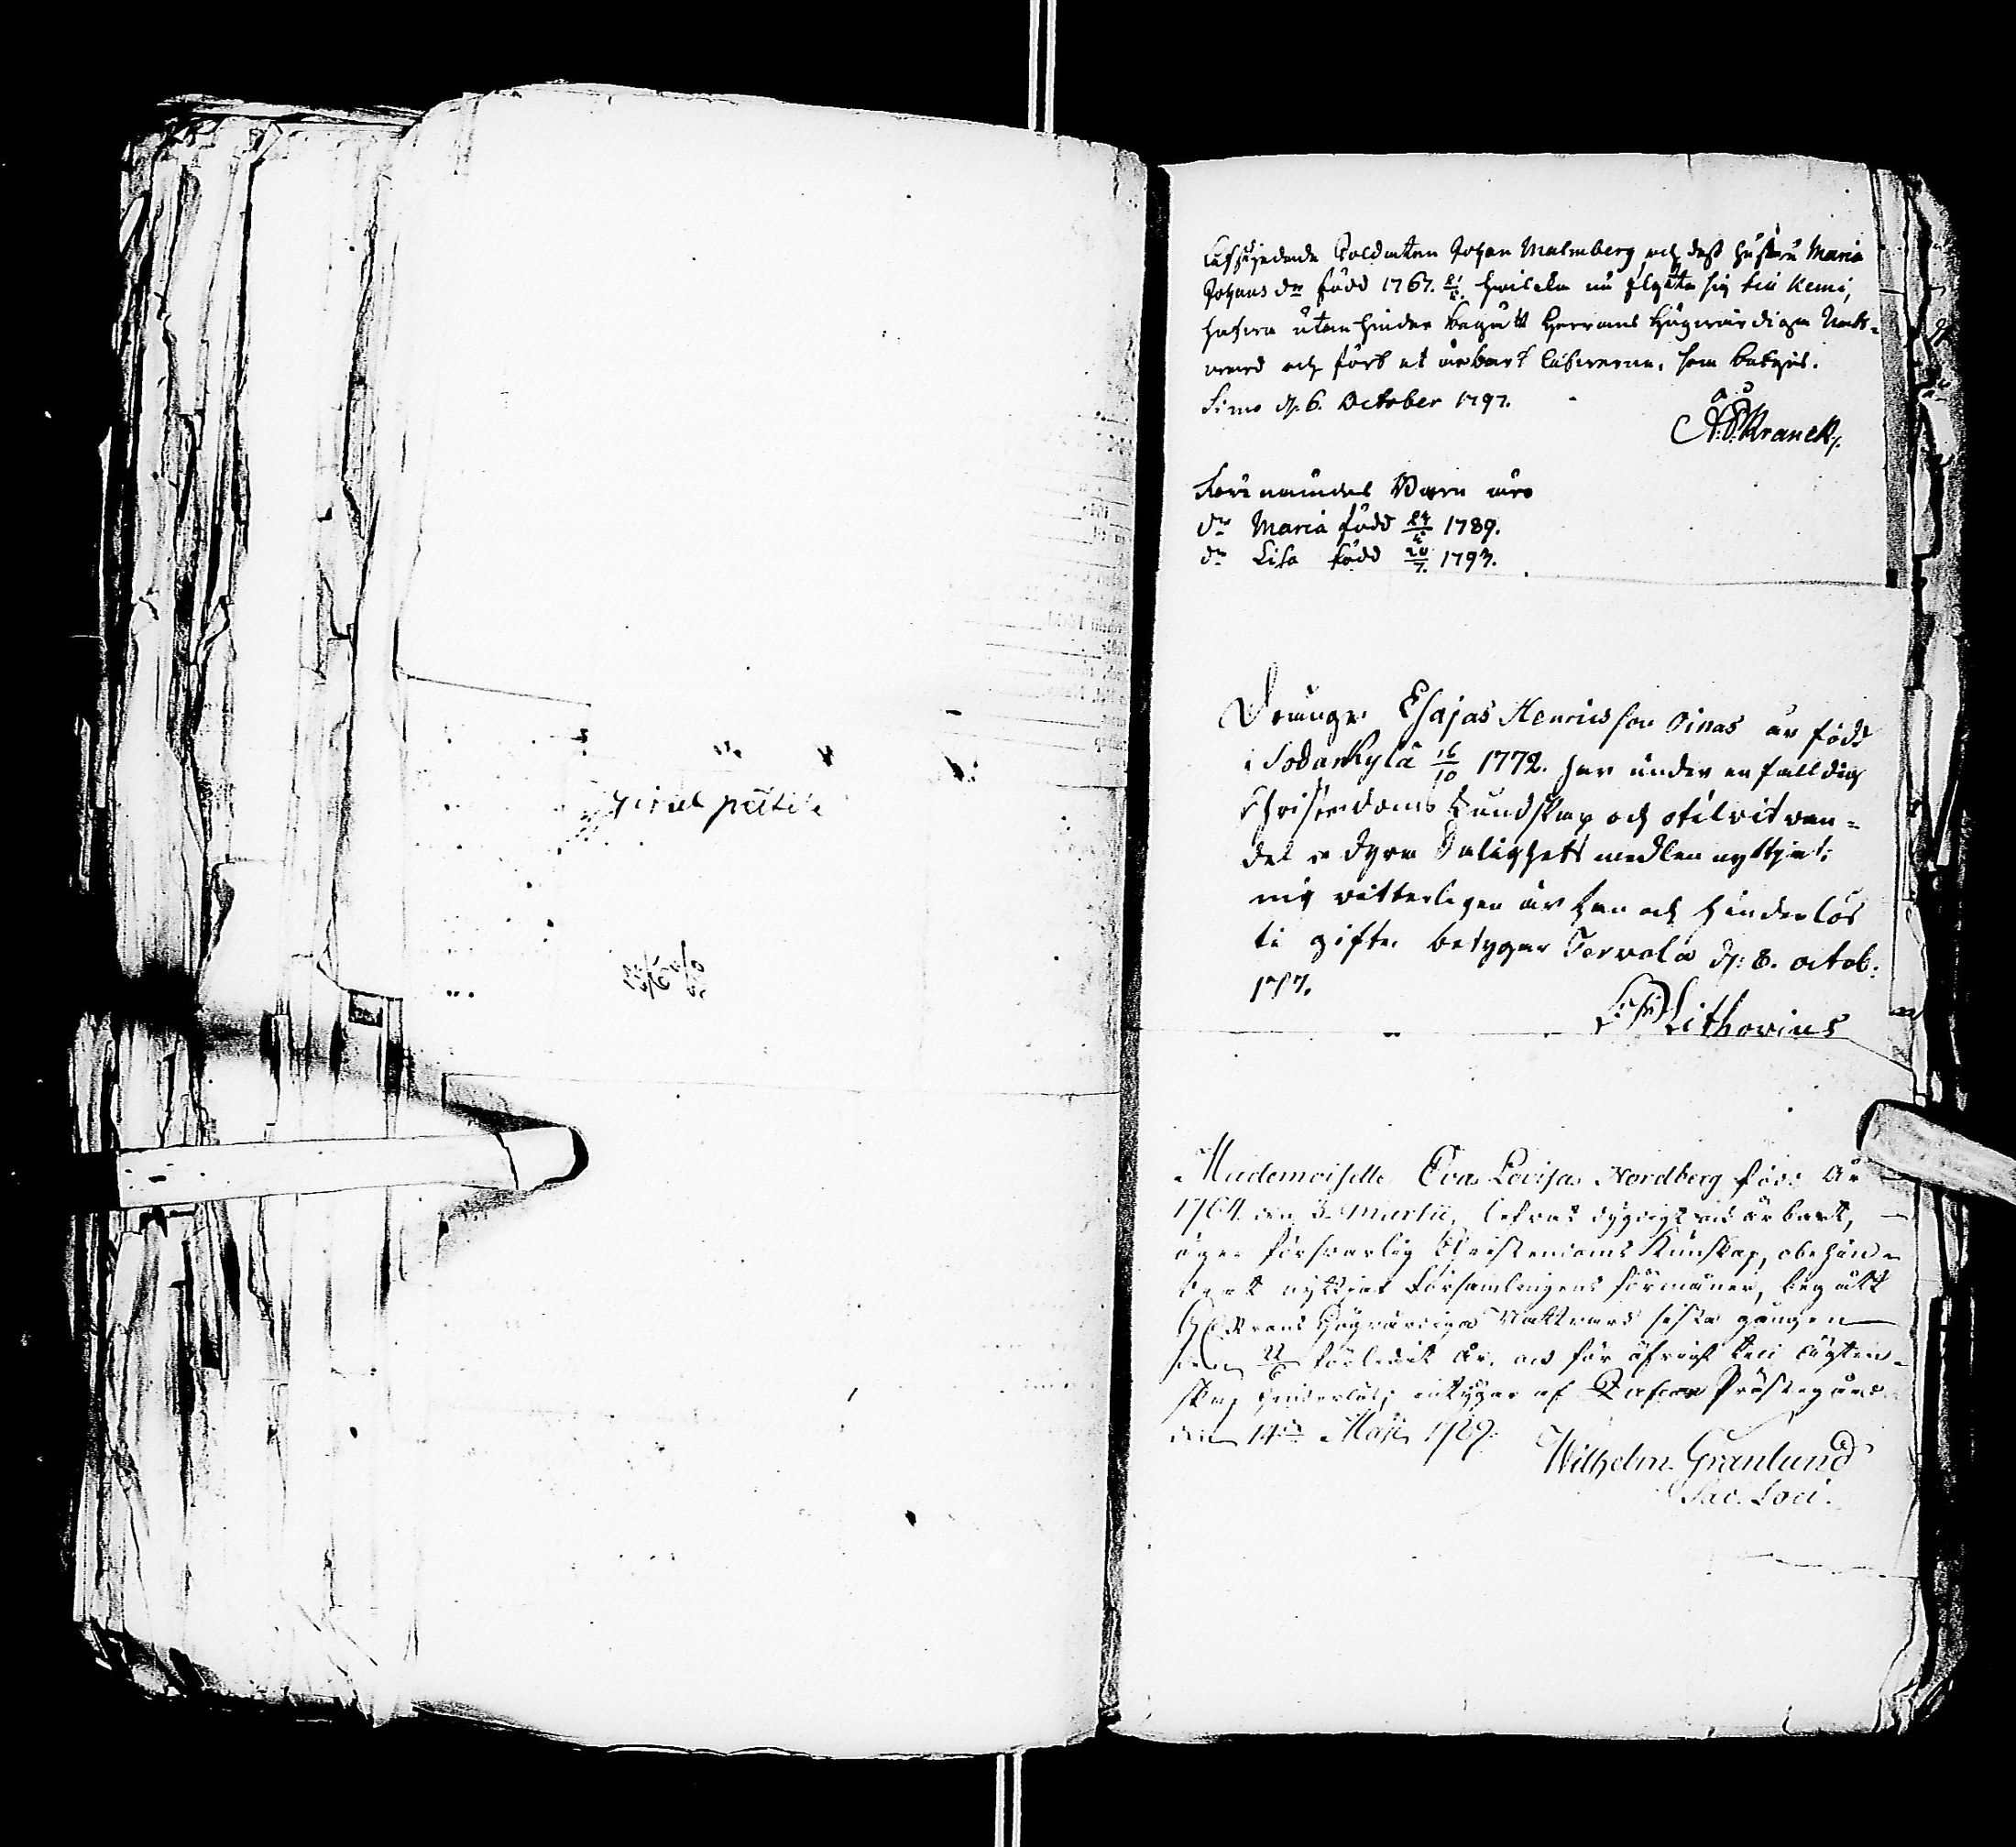 Afskjedade Soldaten Johan Malmberg och dess hustru Maria
Johans dr född 1767. hvilcka nu flytta sig till Kemi,
hafva utan hinder begått Herrans Högvärdiga Natt-
ward och fört et ärbart lefverne, som betygas.
Simo d. 6. October 1797.
A. Kranck
Förenämdes Barn äro
dr Maria född 1789.
dr Lisa född 20/7. 1793.
Drängen Esajas Henricsson Oinas är född
i Sodankylä 16/10 1772. har under enfalldig
Christendoms Kundskap och otilvit van-
del de dyra Salighets medlen nyttjat;
mig vitterligen är han och hinderlös
til gifte. betygar Tervola d. 8. octob.
1797.
Lithovius
Mademoiselle Eva Lovisa Nordberg född År
1764 den 3 Martii, lefvat dygdigt och ärbart,
äger försvarlig Christendoms Kunskap, obehind-
rat nyttjat Församlingens förmåner, begått
HErrans Högvärdiga Nattvard sista gången
den förledit År, och för öfrigt till ägten-
skap hinderlös; intygar af Prästegård
den 14de Maji 1789.
Wilhelm Granlund
Sac. Loci.